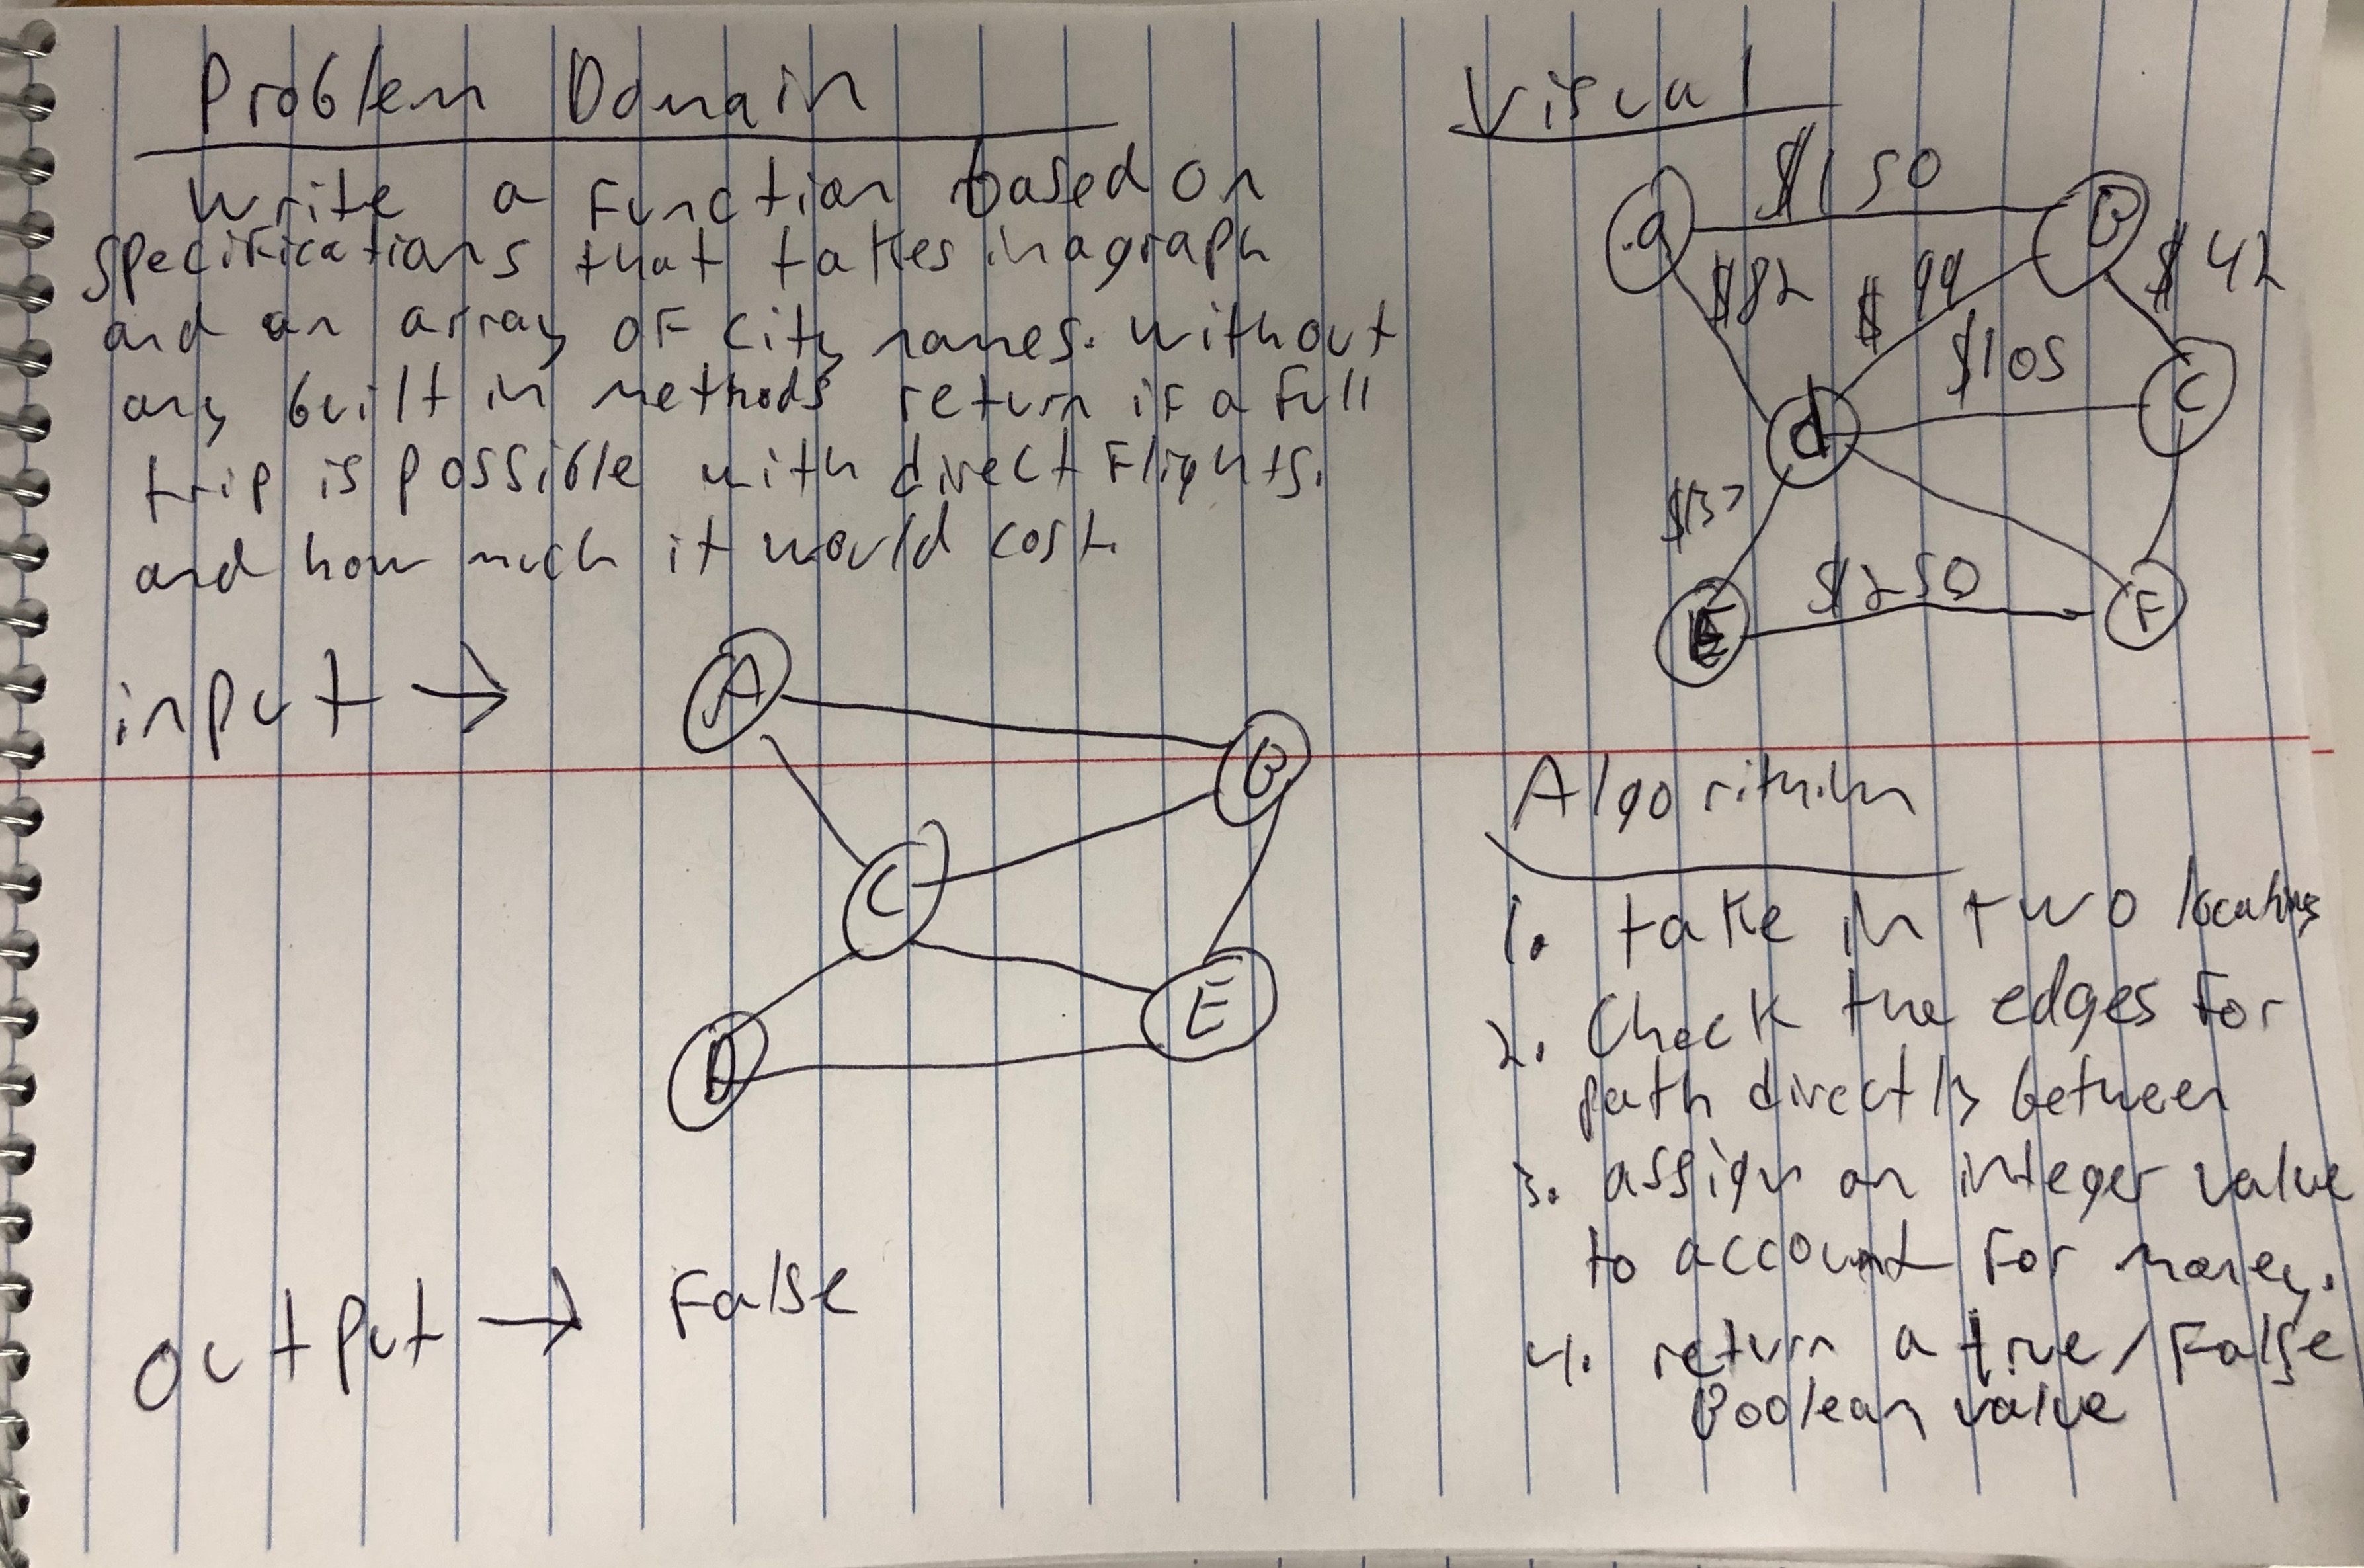 Problem Domain
Write a function based on
specifications that takes in a graph
and an array of city names. without
any built in methods return if a full
trip is possible with direct flights.
and how much it would cost.
input →
A
B
C
D
E
output → False
Visual
a
$150
B
$82
$99
$42
$105
d
C
$250
E
F
Algorithim
1. take in two locations
2. Check the edges for
path directly between
3. assign an integer value
to account for money.
4. return a true/False
Boolean value